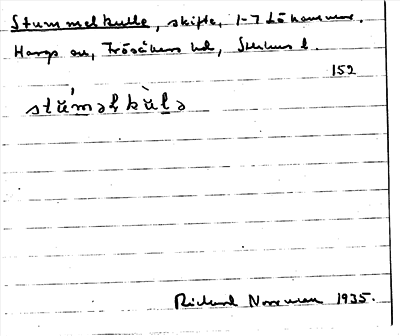 Stummelkulle, skifte, 1-7 Löhammar.
Hargs sn, Frösåkers hd, Sthlms l.
152
stúməl̥kùlə
Rickard Norrman 1935.